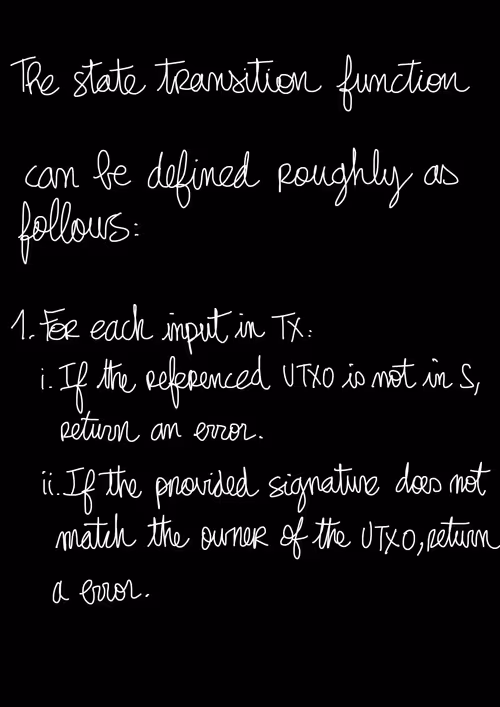 The state transition function
can be defined roughly as
follows:
1. For each input in TX:
i. If the referenced UTXO is not in S,
return an error.
ii. If the provided signature does not
match the owner of the UTXO, return
a error.